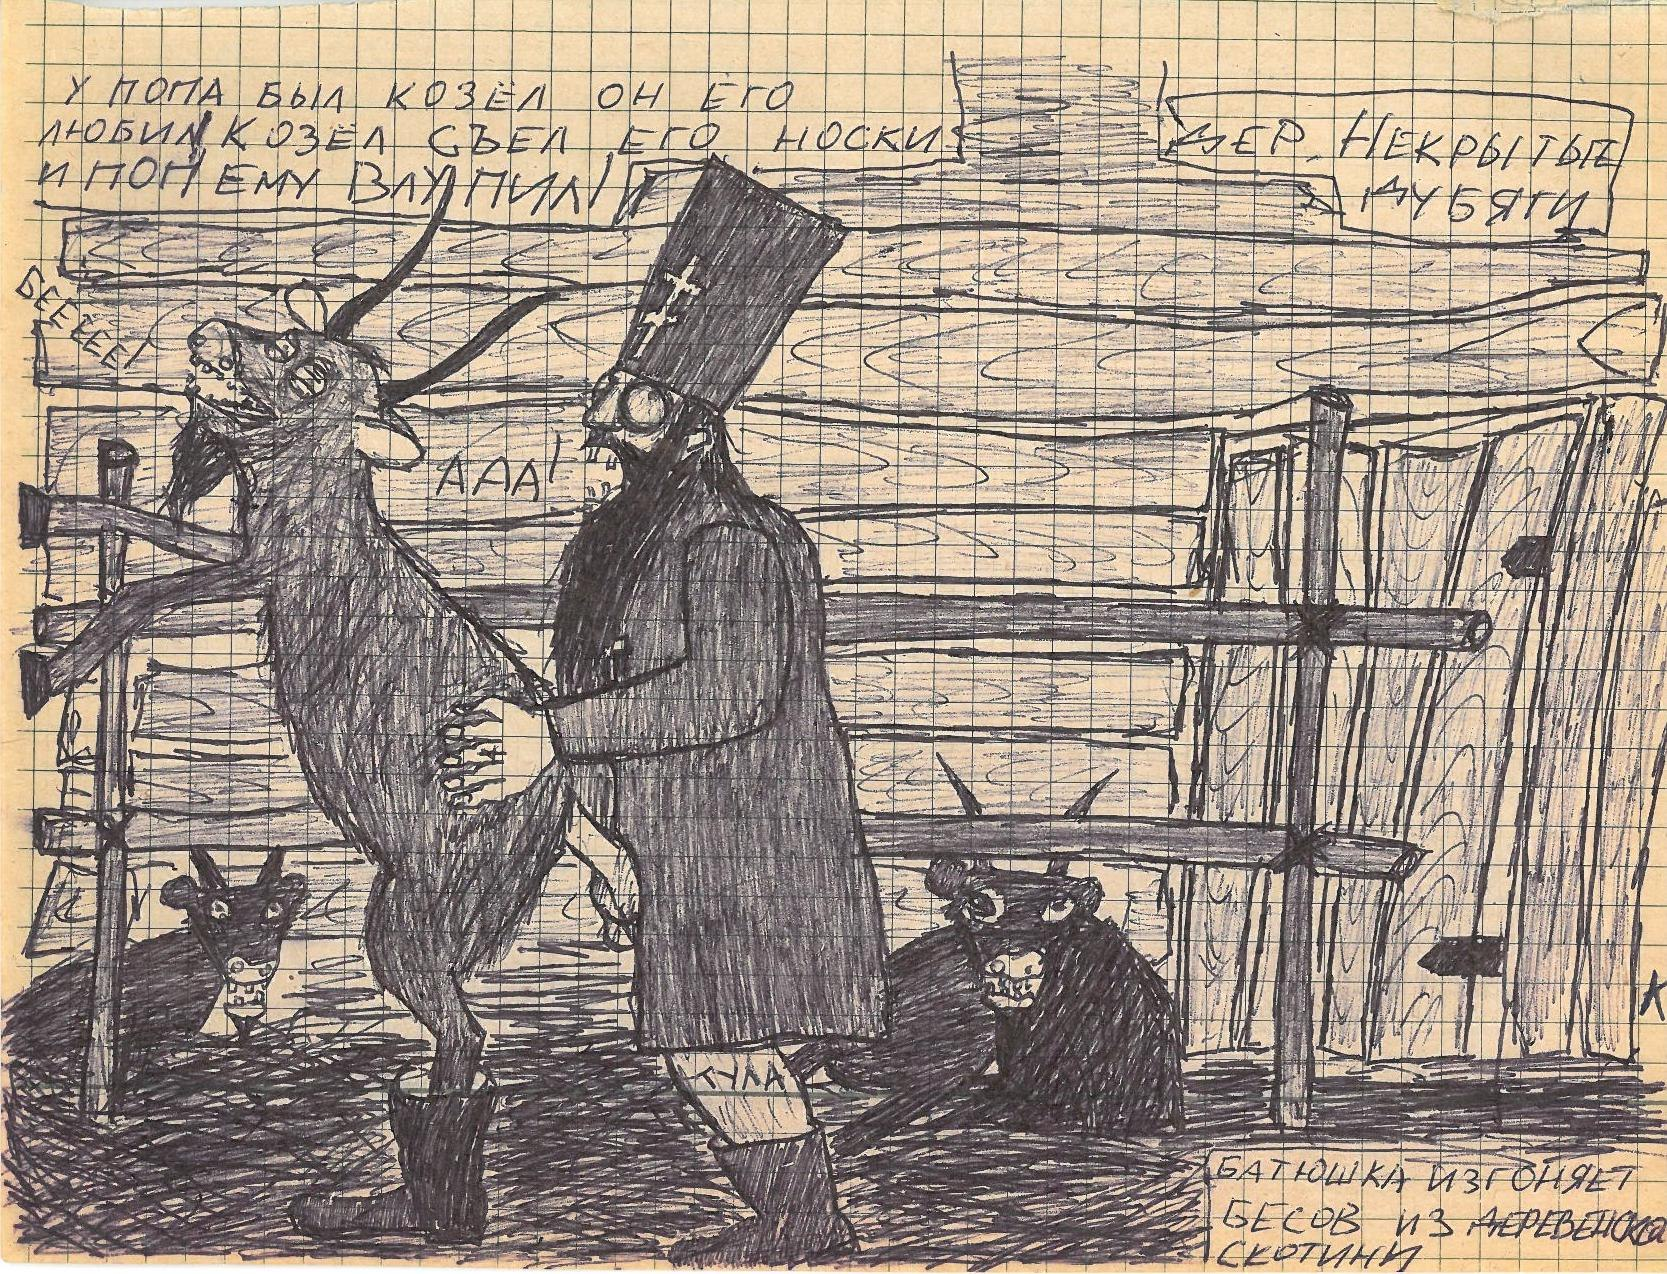 У ПОПА БЫЛ КОЗЁЛ ОН ЕГО
ЛЮБИЛ КОЗЁЛ СЪЕЛ ЕГО НОСКИ
И ПОП ЕМУ ВЛУПИЛ!
ДЕР. НЕКРЫТЫЕ
ДУБЯГИ
БЕЕЕЕЕЕ!
ААА!
ТУЛА
БАТЮШКА ИЗГОНЯЕТ
БЕСОВ ИЗ
СКОТИНИ